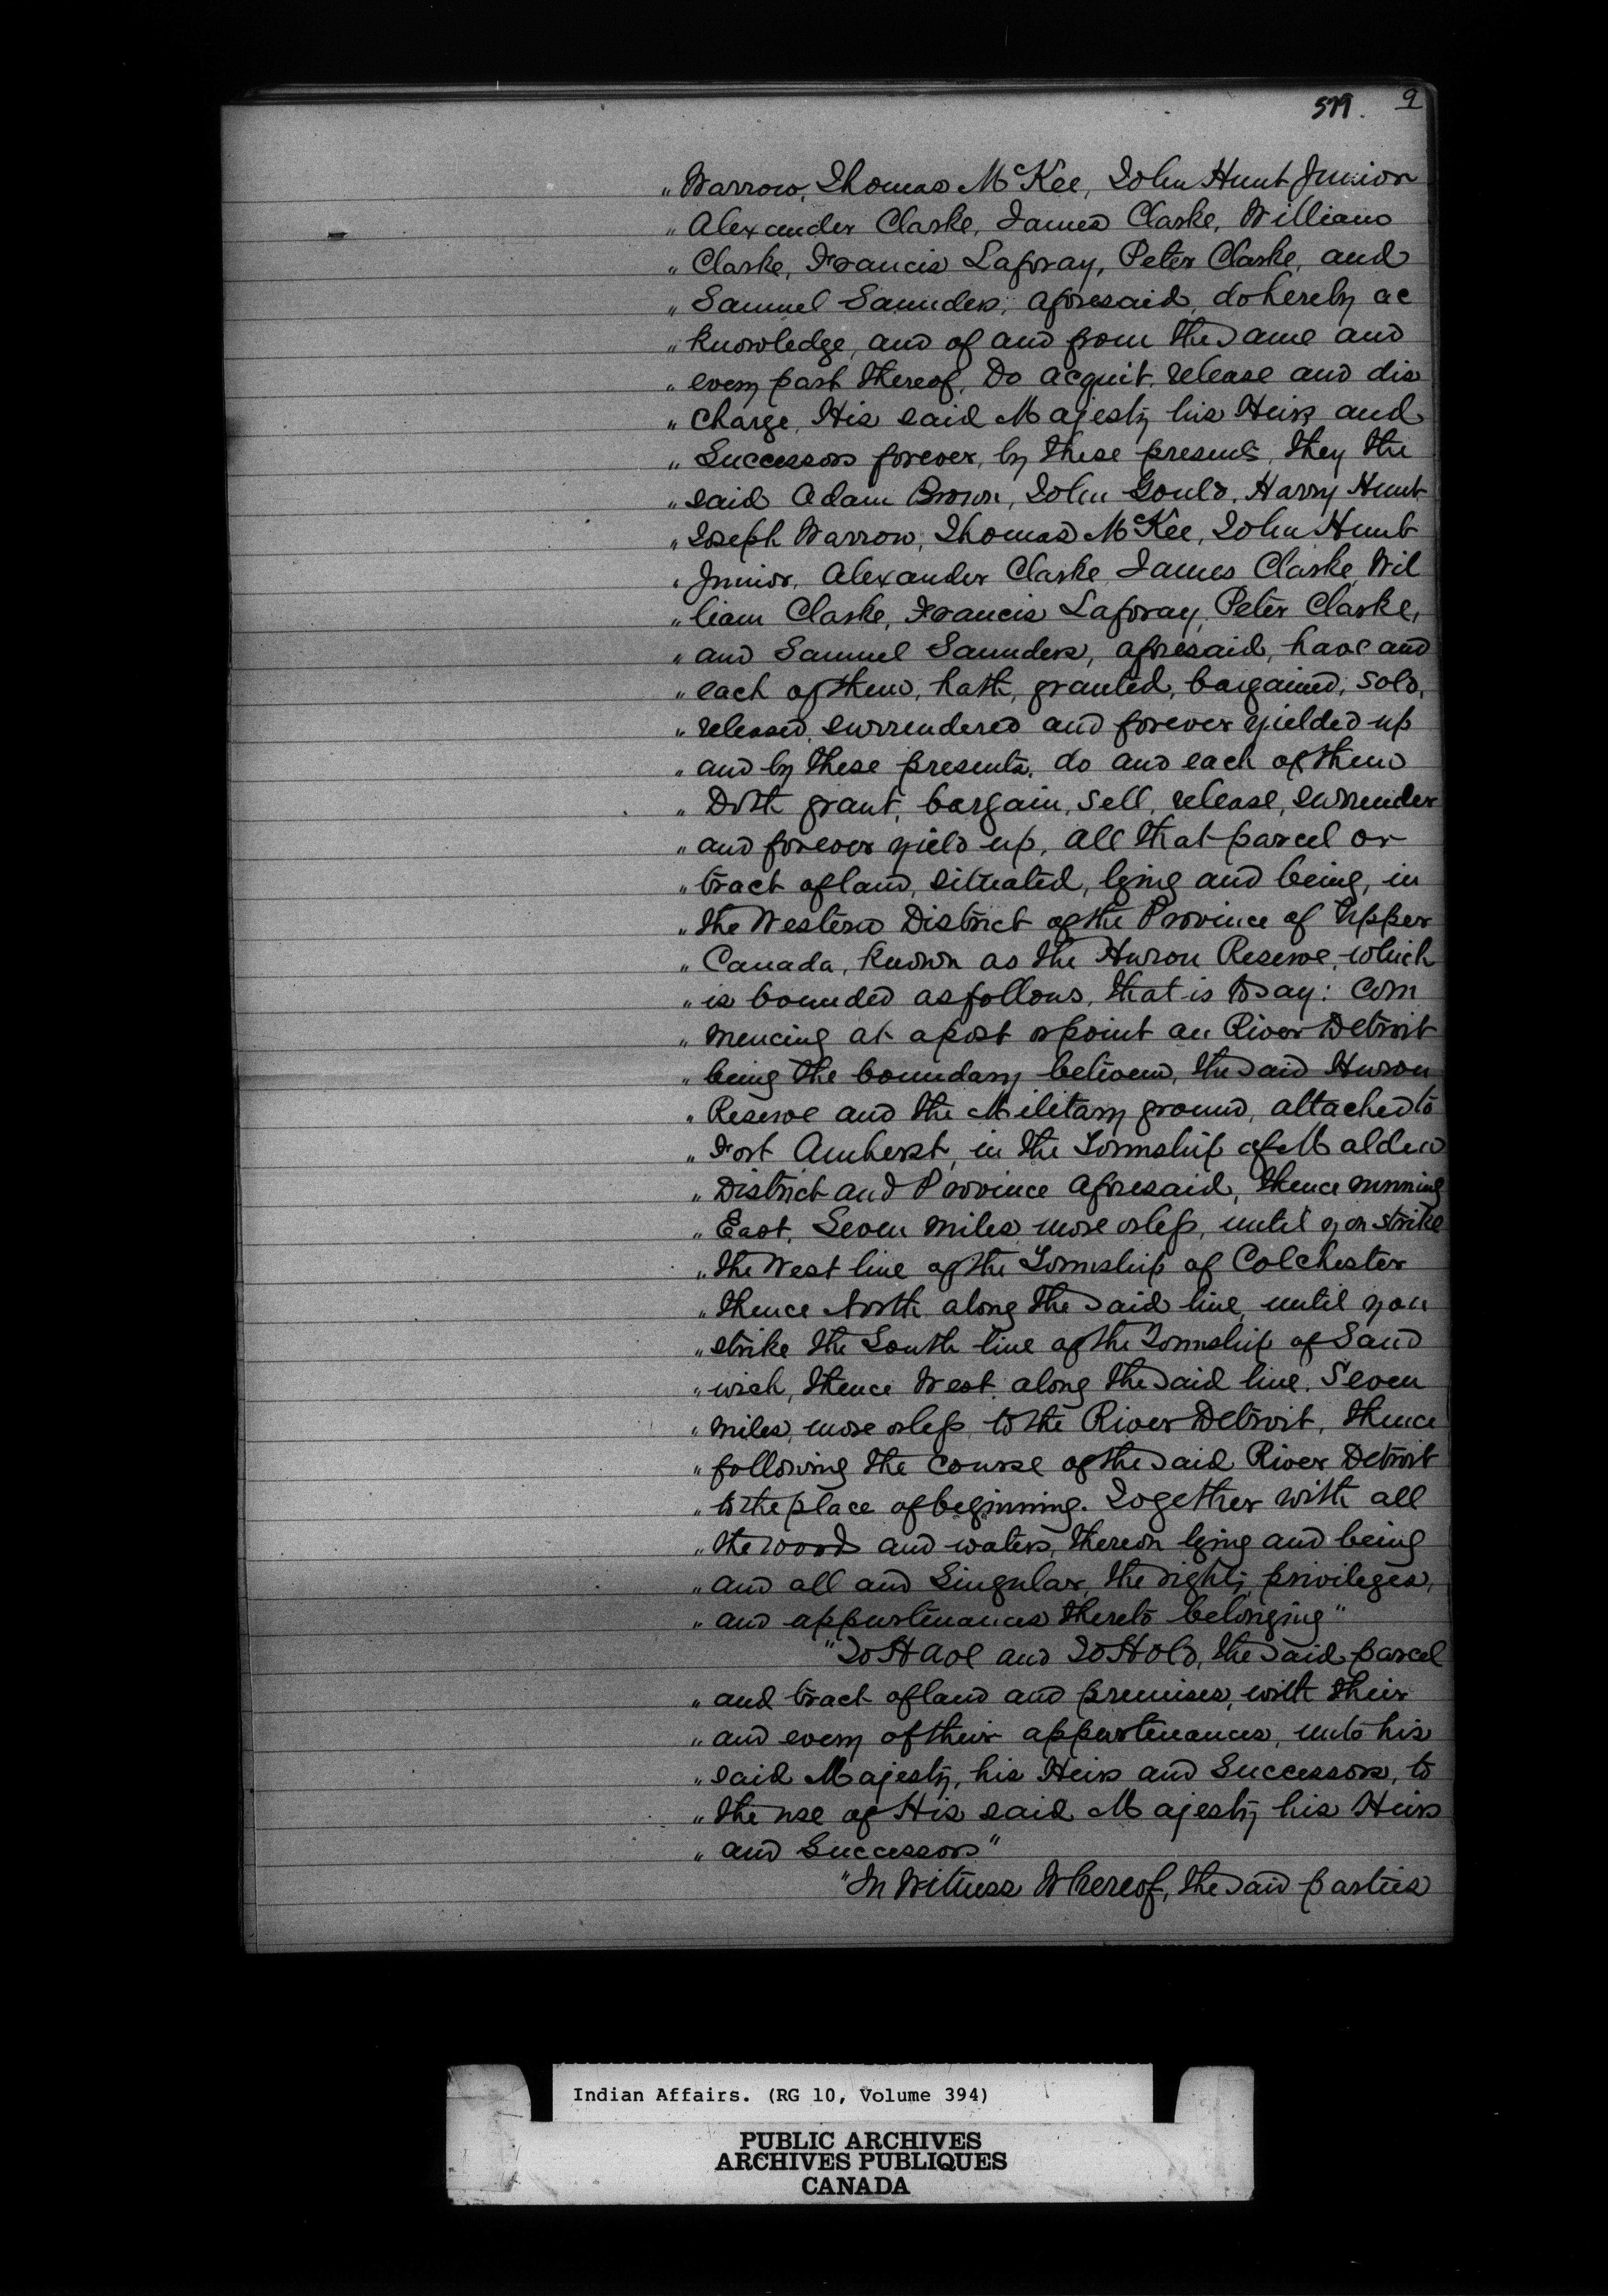 579. 9
„ Warrow, Thomas McKee, John Hunt Junior
„ Alexander Clarke, James Clarke, William
„ Clarke, Francis Laforay, Peter Clarke, and
„ Samuel Saunders, aforesaid, do hereby ac
„ knowledge, and of and from the same and
„ every part thereof, Do acquit, release and dis
„ charge, His said Majesty his Heirs and
„ Successors forever, by these presents, they the
„ said Adam Brown, John Gould, Harry Hunt
„ Joseph Warrow, Thomas McKee, John Hunt
„ Junior, Alexander Clarke, James Clarke, Wil
„ liam Clarke, Francis Laforay, Peter Clarke,
„ and Samuel Saunders, aforesaid, have and
„ each of them, hath, granted, bargained, sold,
„ released, surrendered and forever yielded up
„ and by these presents, do and each of them
„ Doth grant, bargain, sell, release, surrender
„ and forever yield up, all that parcel or
„ tract of land, situated, lying and being, in
„ the Western District of the Province of Upper
„ Canada, known as the Huron Reserve, which
„ is bounded as follows, that is to say: Com
„ mencing at a post or point on River Detroit
„ being the boundary between, the said Huron
„ Reserve and the Military ground, attached to
„ Fort Amherst, in the Township of Malden
„ District and Province aforesaid, thence running
„ East, Seven miles more or less, until you strike
„ the West line of the Township of Colchester
„ thence North along the said line, until you
„ strike the South line of the Township of Sand
„ wich, thence West along the said line, Seven
„ miles, more or less, to the River Detroit, thence
„ following the course of the said River Detroit
„ to the place of beginning. Together with all
„ the woods and waters, thereon lying and being
„ and all and Singular, the rights, privileges,
„ and appurtenances thereto belonging"
"To Have and To Hold, the said parcel
„ and tract of land and premises, with their
„ and every of their appurtenances, unto his
„ said Majesty, his Heirs and Successors, to
„ the use of His said Majesty his Heirs
„ and Successors"
"In Witness Whereof, the said parties
Indian Affairs. (RG 10, Volume 394)
PUBLIC ARCHIVES
ARCHIVES PUBLIQUES
CANADA